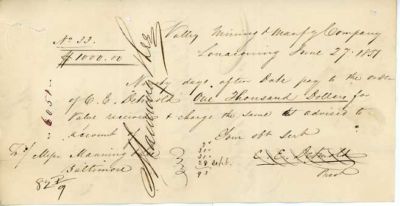 No 33. Valley Mining & Manfg Company
$1000.00 Lonaconing June 27. 1851
Ninety days, after Date pay to the order
of C. E. Detmold One Thousand Dollars for
Value received & charge the same as advised to
account Your obt Servt
To Messrs Manning & Lee C. E. Detmold
Baltimore Prest
Manning & Lee
6051
28 Sept.